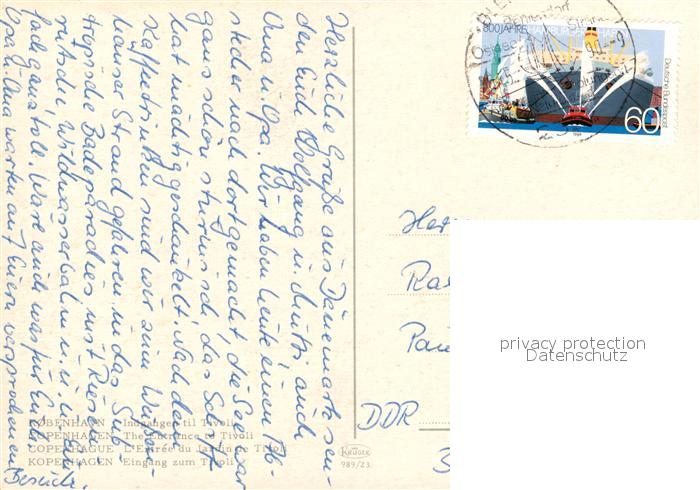 Herzliche Grüße aus Dänemark sen-
den Euch Wolfgang u. Mutti auch
Oma u. Opa. Wir haben heute einen Ab-
stecher nach dort gemacht, die See war
ganz schön stürmisch, das Schiff
hat mächtig geschaukelt. Nach dem
Kaffeetrinken sind wir zum Weißen-
häuser Strand gefahren, in das Sub-
tropische Badeparadies mit Riesen-
rutsche, Wildwasserbahn u.s.w. Ein-
fach ganz toll. Wäre auch was für Euch.
Opa u. Oma warten auf Euern versprochenen
Besuch.
KØBENHAVN Indgangen til Tivoli
KOPENHAGEN The Entrance to Tivoli
COPENHAGUE L'Entrée du Jardin de Tivoli
KOPENHAGEN Eingang zum Tivoli
KRÜGER
989/23
800 JAHRE HAMBURGER HAFEN
Deutsche Bundespost
60
1989
Her
Ral
DDR
privacy protection
Datenschutz